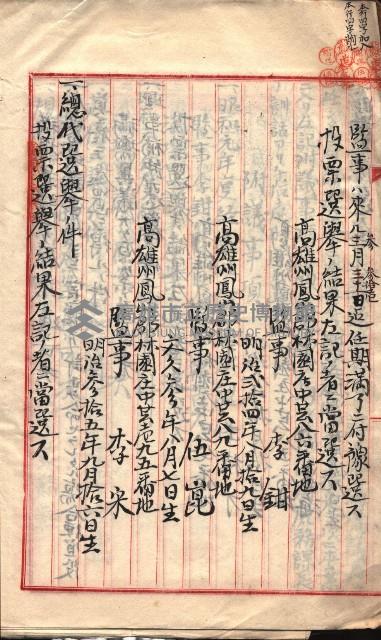 監事ハ來ル三月三十一日迄任期満了ニ付豫選ス
投票選擧ノ結果左記者ニ當選ス
高雄州鳳山郡林園庄中芸八六番地
監事 李鉗
明治弍拾四年八月拾九日生
高雄州鳳山郡林園庄中芸八九番地
監事 伍崑
文久参年八月七日生
高雄州鳳山郡林園庄中芸壱九五番地
監事 李宋
明治参拾五年九月拾六日生
一、總代選擧ノ件
投票選擧ノ結果左記者ニ當選ス